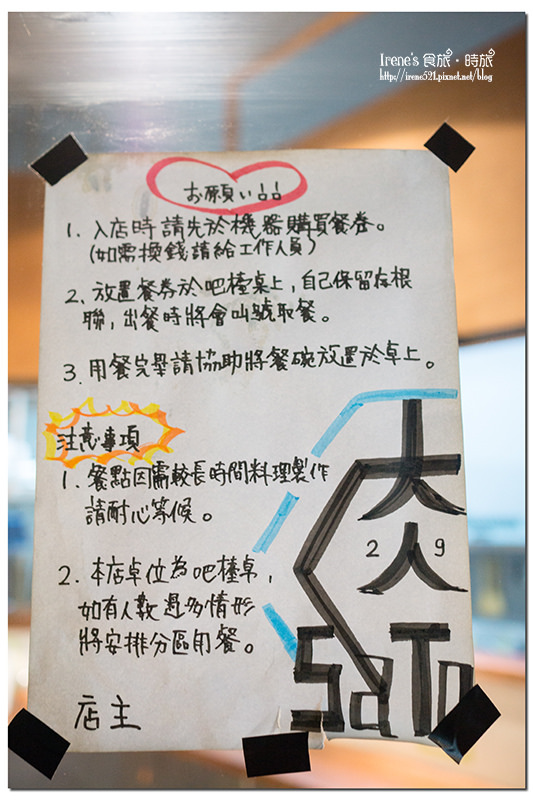 Irene's 食旅・時旅
http://irene521.pixnet.net/blog
お願い
1. 入店時請先於機器購買餐券。
(如需換錢請給工作人員)
2. 放置餐券於吧檯桌上,自己保留存根
聯,出餐時將會叫號取餐。
3. 用餐完畢請協助將餐碗放置於桌上。
注意事項
1. 餐點因需較長時間料理製作
請耐心等候。
2. 本店桌位為吧檯桌,
如有人數過多情形
將安排分區用餐。
店主
大
2 人 9
SaTo